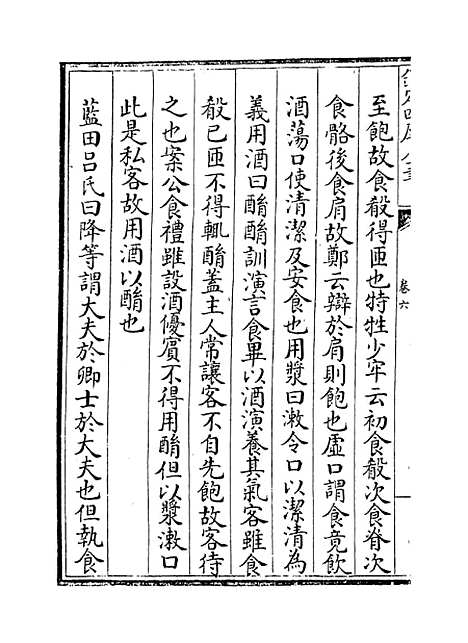 至飽故食殽得匝也特牲少牢云初食殽次食脊次
食骼後食肩故鄭云辯於肩則飽也虛口謂食竟飲
酒蕩口使清潔及安食也用漿曰漱令口以潔清為
義用酒曰酳酳訓演言食畢以酒演養其氣客雖食
殽已匝不得輒酳蓋主人常讓客不自先飽故客待
之也案公食禮雖設酒優賓不得用酳但以漿漱口
此是私客故用酒以酳也
藍田呂氏曰降等謂大夫於卿士於大夫也但執食
卷六